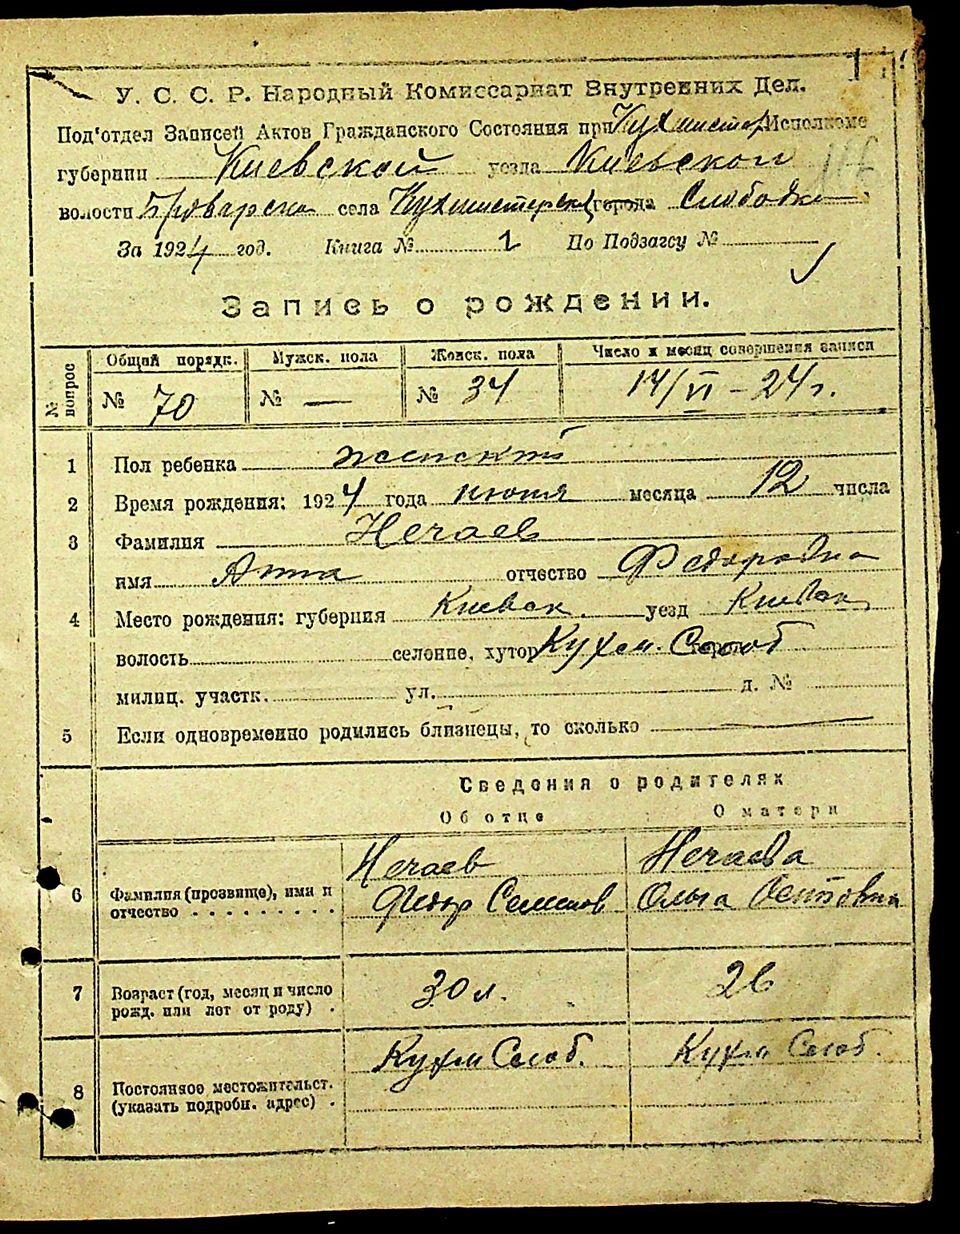 У. С. С. Р. Народный Комиссариат Внутренних Дел.
Под'отдел Записей Актов Гражданского Состояния при Кухмистер Исполкоме
губернии Киевской уезда Киевской
волости Броварской села Кухмистерской города Слободка
За 1924 год. Книга № 1 По Подзагсу №
Запись о рождении.
№ вопрос Общий порядк. Мужск. пола Женск. пола Число и месяц совершения записи
№ 70 № — № 34 14/VI – 24 г.
1 Пол ребенка женский
2 Время рождения: 1924 года июня месяца 12 числа
3 Фамилия Нечаев
имя Анна отчество Федоровна
4 Место рождения: губерния Киевск. уезд Киевск
волость селение, хутор Кухм. Слоб
милиц. участк. ул. д. №
5 Если одновременно родились близнецы, то сколько —
Сведения о родителях
Об отце О матери
Нечаев Нечаева
6 Фамилия (прозвище), имя и отчество Федор Семенов Ольга Осиповна
7 Возраст (год, месяц и число рожд. или лет от роду) 30 л. 26
Кухм Слоб. Кухм Слоб.
8 Постоянное местожительст. (указать подробн. адрес)